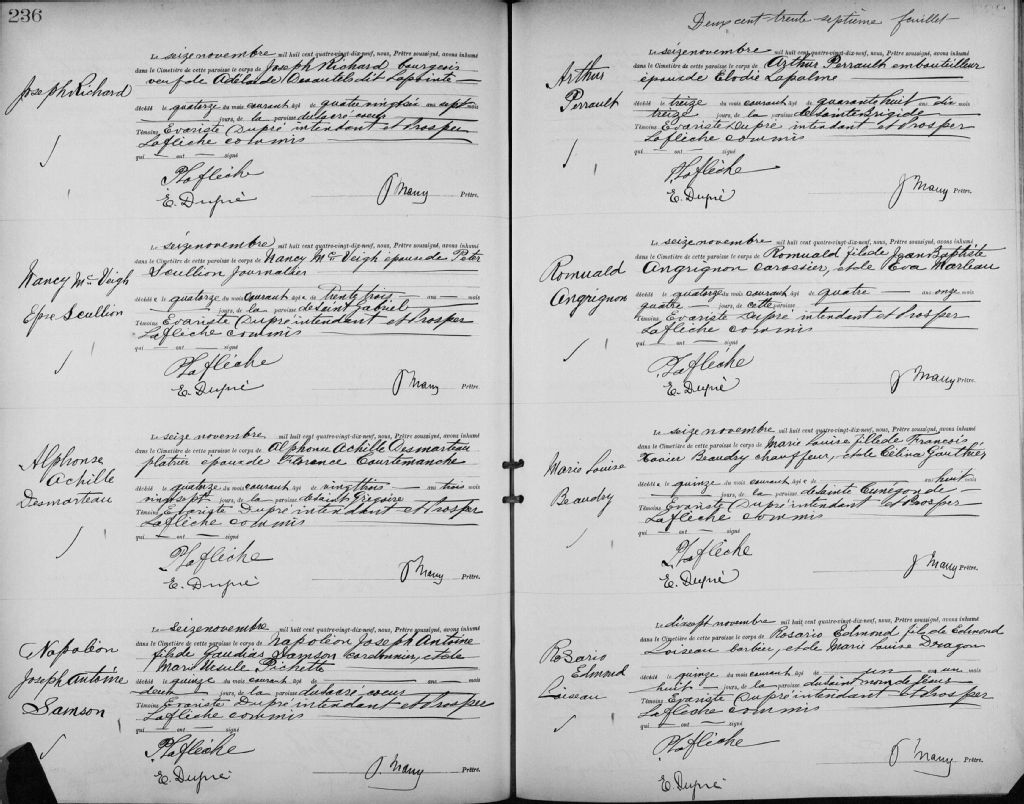 236
Joseph Richard
Le seize novembre mil huit cent quatre-vingt-dix-neuf, nous, Prêtre soussigné, avons inhumé
dans le Cimetière de cette paroisse le corps de Joseph Richard bourgeois
veuf de Adélaïde
décédé le quatorze du mois courant âgé de quatre vingt six ans sept mois
jours, de la paroisse du Sacré coeur
Témoins Evariste Dupré intendant et Prosper
Laflèche commis
qui — ont — signé
P Laflèche
E. Dupré
P Many Prêtre.
Nancy Mc Veigh
Epse Scullion
Le seize novembre mil huit cent quatre-vingt-dix-neuf, nous, Prêtre soussigné, avons inhumé
dans le Cimetière de cette paroisse le corps de Nancy Mc Veigh épouse de Peter
Scullion journalier
décédée le quatorze du mois courant âgée de trente trois — ans — mois
— jours, de la paroisse de Saint Gabriel
Témoins Evariste Dupré intendant et Prosper
Laflèche commis
qui — ont — signé
P Laflèche
E. Dupré
P Many Prêtre.
Alphonse
Achille
Desmarteau
Le seize novembre mil huit cent quatre-vingt-dix-neuf, nous, Prêtre soussigné, avons inhumé
dans le Cimetière de cette paroisse le corps de Alphonse Achille Desmarteau
platrier époux de Florence Courtemanche
décédé le quatorze du mois courant âgé de vingt trois — ans trois mois
vingt sept jours, de la paroisse de Saint Grégoire
Témoins Evariste Dupré intendant et Prosper
Laflèche commis
qui — ont — signé
P Laflèche
E. Dupré
P Many Prêtre.
Napoléon
Joseph Antoine
Samson
Le seize novembre mil huit cent quatre-vingt-dix-neuf, nous, Prêtre soussigné, avons inhumé
dans le Cimetière de cette paroisse le corps de Napoléon Joseph Antoine
fils de Gaudias Samson cordonnier, et de
Marie Ursule Pichette
décédé le quinze du mois courant âgé de — ans — mois
deux — jours, de la paroisse du Sacré coeur
Témoins Evariste Dupré intendant et Prosper
Laflèche commis
qui — ont — signé
P Laflèche
E. Dupré
P. Many Prêtre.
Deux cent trente septième feuillet
Arthur
Perrault
Le seize novembre mil huit cent quatre-vingt-dix-neuf, nous, Prêtre soussigné, avons inhumé
dans le Cimetière de cette paroisse le corps de Arthur Perrault embouteilleur
époux de Elodie Lapalme
décédé le treize du mois courant âgé de quarante huit ans dix mois
treize jours, de la paroisse de Sainte Brigide
Témoins Evariste Dupré intendant et Prosper
Laflèche commis
qui — ont — signé
P Laflèche
E. Dupré
P Many Prêtre.
Romuald
Angrignon
Le seize novembre mil huit cent quatre-vingt-dix-neuf, nous, Prêtre soussigné, avons inhumé
dans le Cimetière de cette paroisse le corps de Romuald fils de Jean Baptiste
Angrignon carossier, et de Eva Marleau
décédé le quatorze du mois courant âgé de quatre — ans onze mois
quatre — jours, de cette paroisse
Témoins Evariste Dupré intendant et Prosper
Laflèche commis
qui — ont — signé
P Laflèche
E. Dupré
P Many Prêtre.
Marie Louise
Beaudry
Le seize novembre mil huit cent quatre-vingt-dix-neuf, nous, Prêtre soussigné, avons inhumé
dans le Cimetière de cette paroisse le corps de Marie Louise fille de François
Xavier Beaudry chauffeur, et de Célina Gauthier
décédée le quinze du mois courant âgée de — ans huit mois
— jours, de la paroisse de Sainte Cunégonde
Témoins Evariste Dupré intendant et Prosper
Laflèche commis
qui — ont — signé
P Laflèche
E. Dupré
P Many Prêtre.
Rosario
Edmond
Loiseau
Le dix sept novembre mil huit cent quatre-vingt-dix-neuf, nous, Prêtre soussigné, avons inhumé
dans le Cimetière de cette paroisse le corps de Rosario Edmond fils de Edmond
Loiseau barbier, et de Marie Louise Dragon
décédé le quinze du mois courant âgé de — un an un mois
huit — jours, de la paroisse du Saint nom de Jésus
Témoins Evariste Dupré intendant et Prosper
Laflèche commis
qui — ont — signé
P Laflèche
E. Dupré
P Many Prêtre.